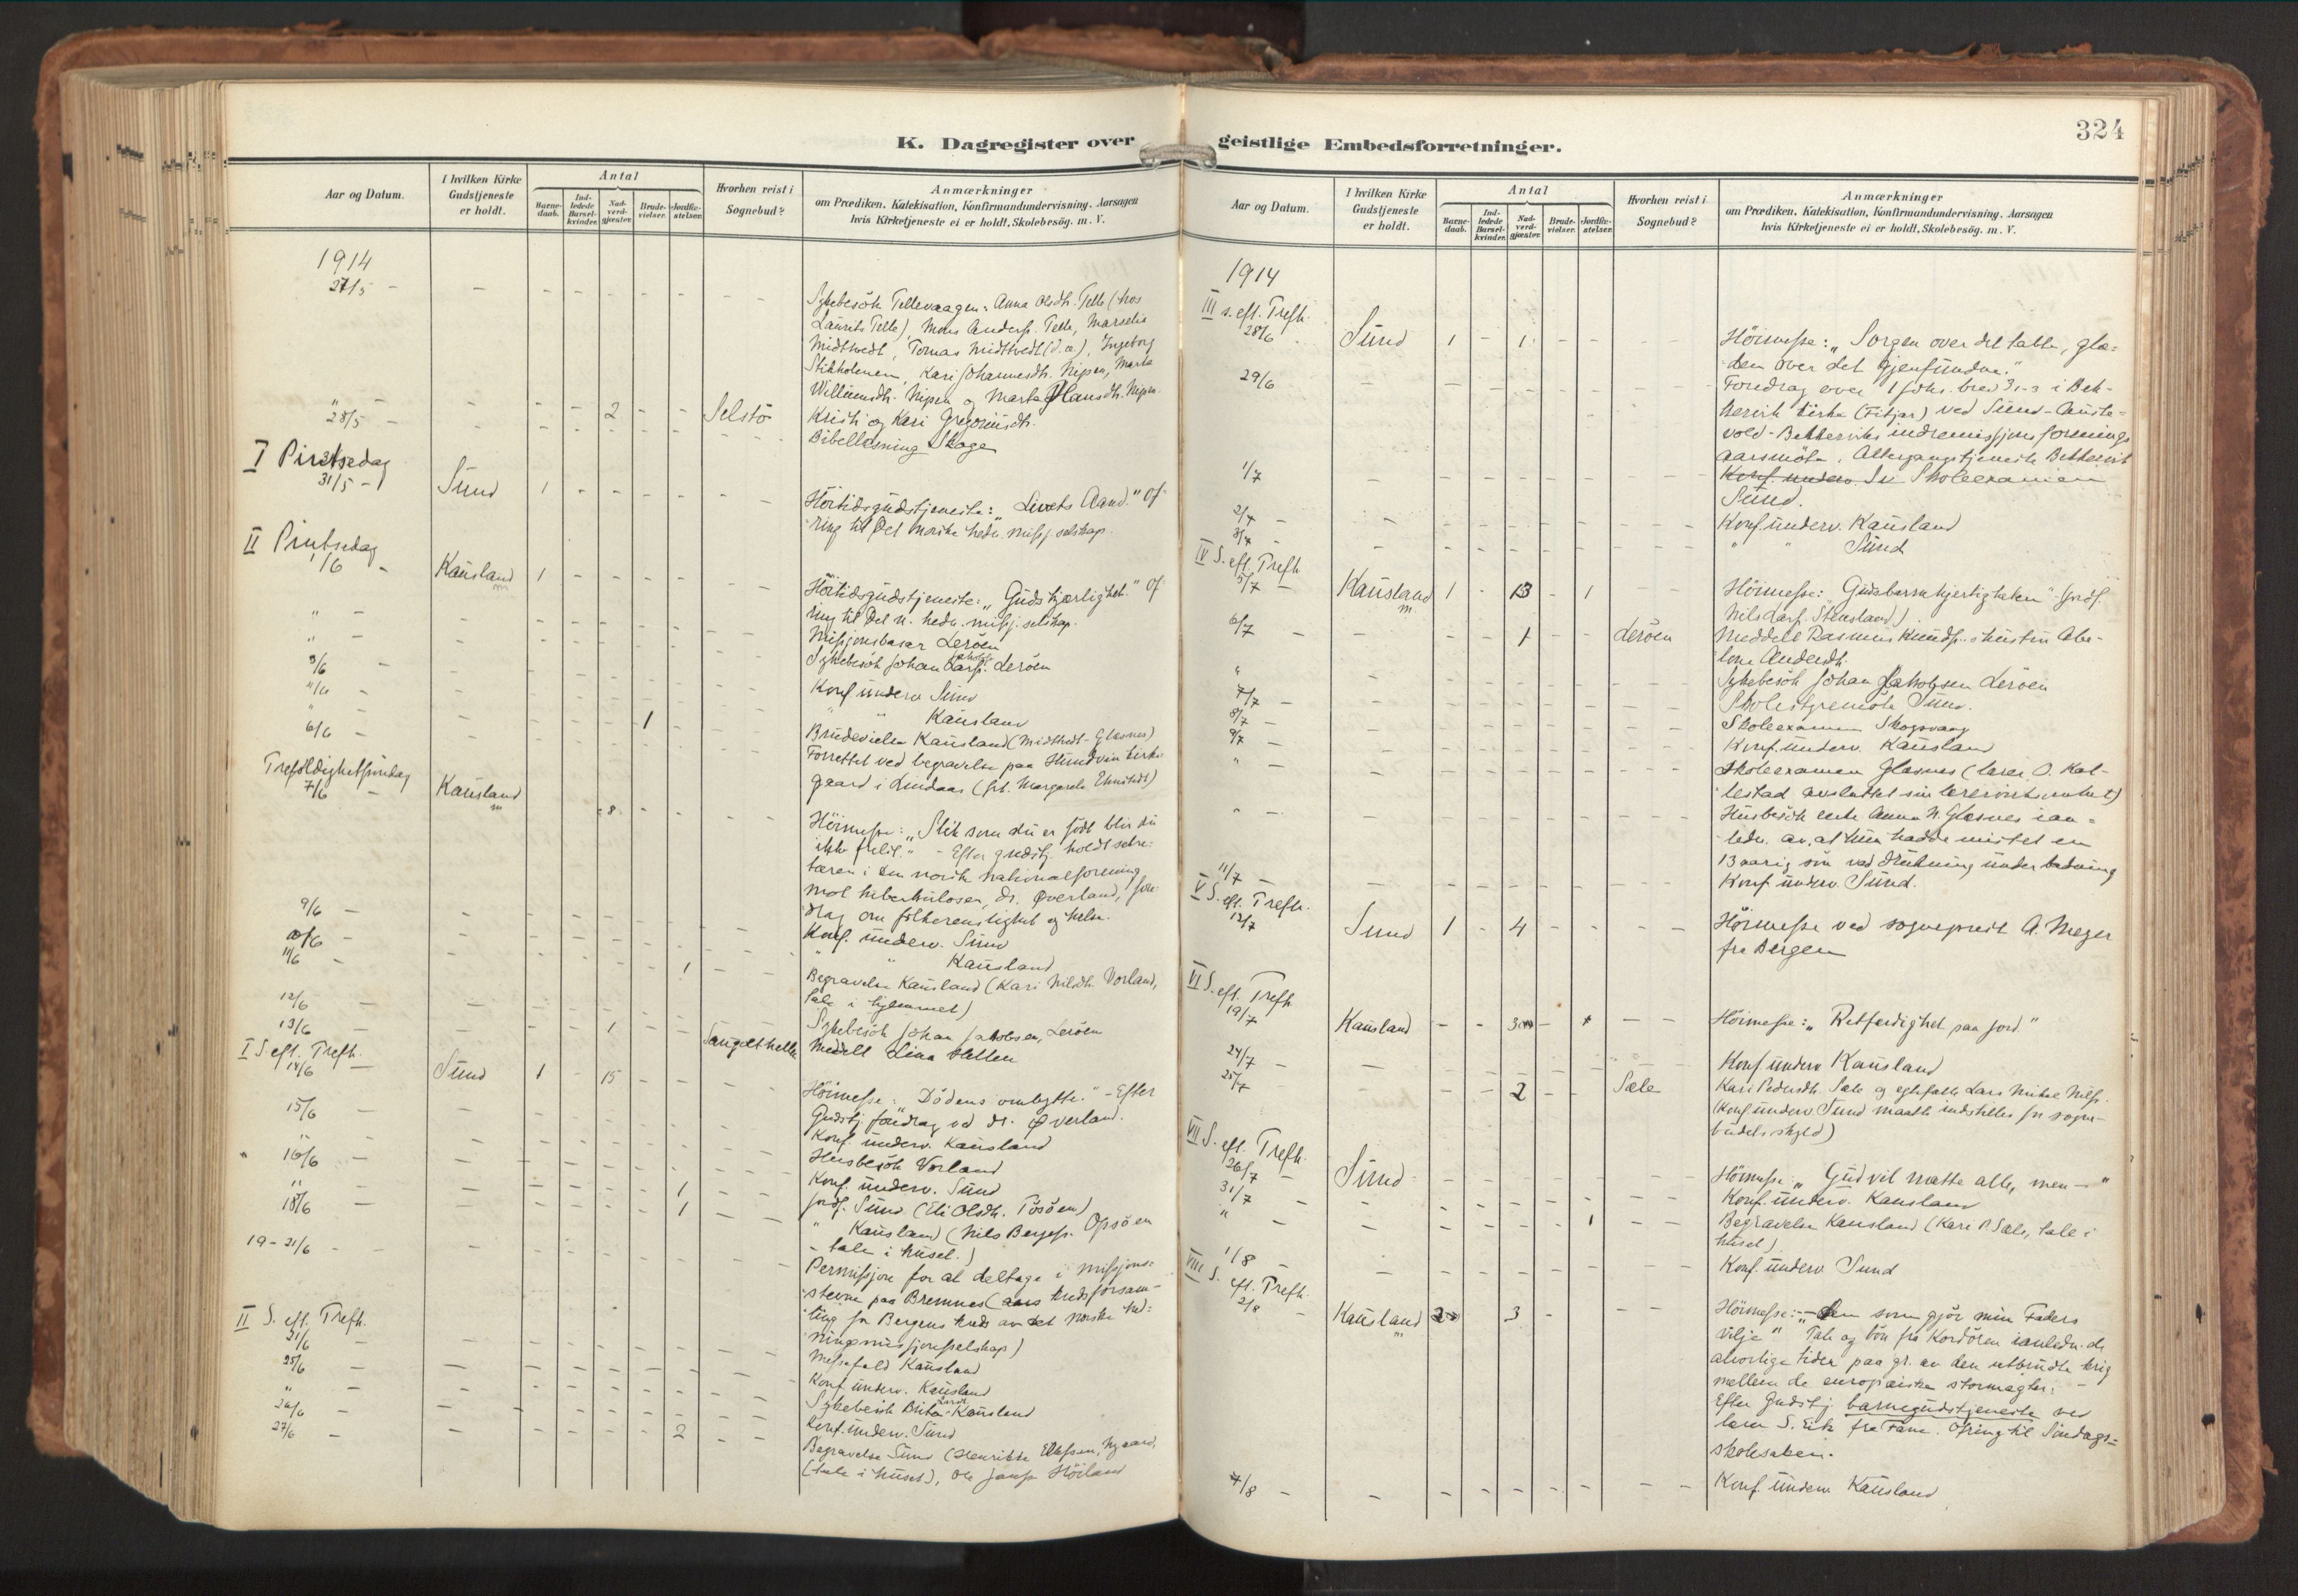 K. Dagregister over
Aar og Datum.
I hvilken Kirke Gudstjeneste er holdt.
Antal
Barne-daab.
Ind-ledede Barsel-kvinder.
Nad-verd-gjæster.
Brude-vielser.
Jordfæ-stelser.
Hvorhen reist i Sognebud?
Anmærkninger
om Prædiken, Katekisation, Konfirmandundervisning. Aarsagen
hvis Kirketjeneste ei er holdt, Skolebesög. m. V.
1914
27/5 - Sykebesök Tellevaagen: Anna Olsdh. Telle (hos
Laurits Telle), Mons Anderss. Telle, Marselis
Midttvedt, Tomas Midttvedt (d.æ.), Ingeborg
Stikholmen, Kari Johannesdh. Nipen, Marta
Willumsdh. Nipen og Marta Hansdh. Nipen.
" 2 Selstö Kristi og Kari Gregoriusdh.
28/5 - Bibellæsning Skoge
I Pintsedag
31/5 - Sund 1 Höitidsgudstjeneste: "Livets Aand." Of-
ring til Det norske hedn. missj. selskap.
II Pintsedag
1/6 - Kausland 1 Höitidsgudstjeneste: "Guds kjærlighet." Of-
ring til Det n. hedn. missj. selskap.
" - Missjonsbasar Leröen
" - Sykebesök Johan Leröen
3/6 - Konf. underv. Sund
4/6 - " " Kausland
" - 1 Brudevielse Kausland (Midttvedt - Glesnes)
6/6 - Forrettet ved begravelse paa Hundvin kirke-
gaard i Lindaas (frk. Margarete)
Trefoldighetssöndag
7/6 - Kausland 8 Höimesse: "Slik som du er födt blir du
ikke frelst." - Efter gudstj. holdt sekre-
tæren i den norske nationalforening
mot tuberkulosen, dr. Øverland, fore-
drag om folkerenslighet og helse.
9/6 - Konf. underv. Sund
10/6 - " " Kausland
11/6 - 1 Begravelse Kausland (Kari Nilsdh. Vorland,
tale i hjemmet)
12/6 - Sykebesök Johan Jakobsen, Leröen
13/6 - 1 Meddelt Lina Hellen
I S. eft. Trefh.
14/6 - Sund 1 15 Höimesse: "Dödens ombytte." - Efter
Gudstj. foredrag ved dr. Øverland.
15/6 - Konf. underv. Kausland
" Husbesök Vorland
16/6 - Konf. underv. Sund
" 1 Jordf. Sund (Eli Olsdh. Tösöen)
18/6 - 1 " Kausland (Nils Bergess. Opsöen
- tale i huset.)
19 - 21/6 - Permissjon for at deltage i missjons-
stevne paa Bremnes (aars kredsforsam-
ling for Bergens kreds av det norske hed-
ningmissjonsselskap)
II S. eft. Trefh.
21/6 - Messefald Kausland
25/6 - Konf. underv. Kausland
" - Sykebesök Brita Larsdh. Kausland
26/6 - Konf. underv. Sund
27/6 - 2 Begravelse Sund (Henrikke Ellefsen, Nygaard,
(tale i huset), Ole Höiland
geistlige Embedsforretninger.
324
Aar og Datum.
I hvilken Kirke Gudstjeneste er holdt.
Antal
Barne-daab.
Ind-ledede Barsel-kvinder.
Nad-verd-gjæster.
Brude-vielser.
Jordfæ-stelser.
Hvorhen reist i Sognebud?
Anmærkninger
om Prædiken, Katekisation, Konfirmandundervisning. Aarsagen
hvis Kirketjeneste ei er holdt, Skolebesög. m. V.
1914
III s. eft. Trefh.
28/6 Sund 1 - 1 Höimesse: "Sorgen over det tabte, glæ-
den over det gjenfundne."
29/6 Foredrag over 1 Johs. brev 3,1-3 i Bek-
kervik kirke (Fitjar) ved Sund - Auste-
vold - Bekkerviks indremissjons forenings
aarsmöte. Altergangstjeneste Bekkervik
1/7 Konf. underv. Su Skoleexamen
Sund.
2/7 - Konf. underv. Kausland
3/7 - " " Sund
IV S. eft. Trefh.
5/7 - Kausland 1 - 13 - 1 Höimesse: "Gudsbarmhjertigheten" - Jordf.
Nils Larss. Stensland).
6/7 - 1 Leröen Meddelt Rasmus Knudss. hustru Abe-
lone Andersdh.
" Sykebesök Johan Jakobsen Leröen
7/7 - Skolestyremöte Sund.
8/7 - Skoleexamen Skogsvaag
9/7 - Konf. underv. Kausland
" - Skoleexamen Glesnes (lærer O. Kal-
lestad avsluttet sin)
" - Husbesök enke Anna N. Glesnes i an-
ledn. av, at hun hadde mistet en
13 aarig sön ved drukning under badning
11/7 - Konf. underv. Sund.
V S. eft. Trefh.
12/7 Sund 1 - 4 Höimesse ved sogneprest A. Meyer
fra Bergen
VI S. eft. Trefh.
19/7 Kausland Höimesse: "Retfærdighet paa jord"
24/7 - Konf. underv. Kausland
25/7 2 Sæle Kari Pedersdh. Sæle og egtefælle Lars Mikal Nilss.
(Konf. underv. Sund maatte indstilles for sogne-
budets skyld)
VII S. eft. Trefh.
26/7 - Sund Höimesse: "Gud vil mætte alle, men - "
31/7 - Konf. underv. Kausland
" - 1 Begravelse Kausland (Kari P. Sæle, tale i
huset)
1/8 - Konf. underv. Sund
VIII S. eft. Trefh.
2/8 - Kausland 2 3 Höimesse: "Den som gjör min Faders
vilje" Tale og bön fra Kordören i anledn. de
alvorlige tider paa gr. av den utbrudte krig
mellem de europæiske stormagter. -
Efter Gudstj. barnegudstjeneste ved
lærer S. Eik fra Fane. Ofring til Söndags-
skolesaken.
7/8 - Konf. underv. Kausland